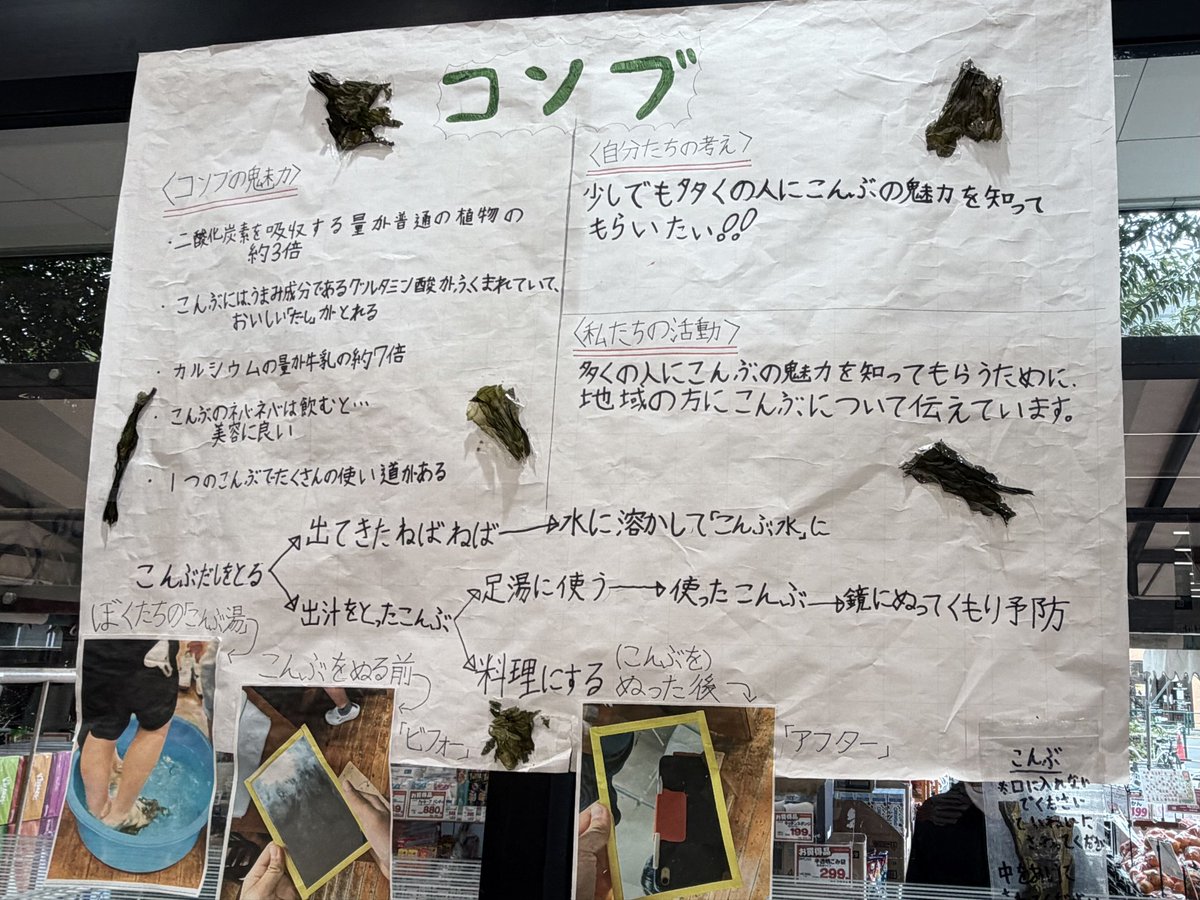 コンブ
〈コンブの魅力〉
・二酸化炭素を吸収する量が普通の植物の
約3倍
・こんぶには、うまみ成分であるグルタミン酸がふくまれていて、
おいしい「だし」がとれる
・カルシウムの量が牛乳の約7倍
・こんぶのネバネバは飲むと…
美容に良い
・1つのこんぶでたくさんの使い道がある
〈自分たちの考え〉
少しでも多くの人にこんぶの魅力を知って
もらいたい!!
〈私たちの活動〉
多くの人にこんぶの魅力を知ってもらうために、
地域の方にこんぶについて伝えています。
こんぶだしをとる
出てきたねばねば→水に溶かして「こんぶ水」に
出汁をとったこんぶ
足湯に使う→使ったこんぶ→鏡にぬってくもり予防
料理にする
ぼくたちの「こんぶ湯」
こんぶをぬる前
「ビフォー」
(こんぶを)
ぬった後
「アフター」
こんぶ
口に入れない
でください
ていねいに、
さわってください
中をあいて
880
199
299